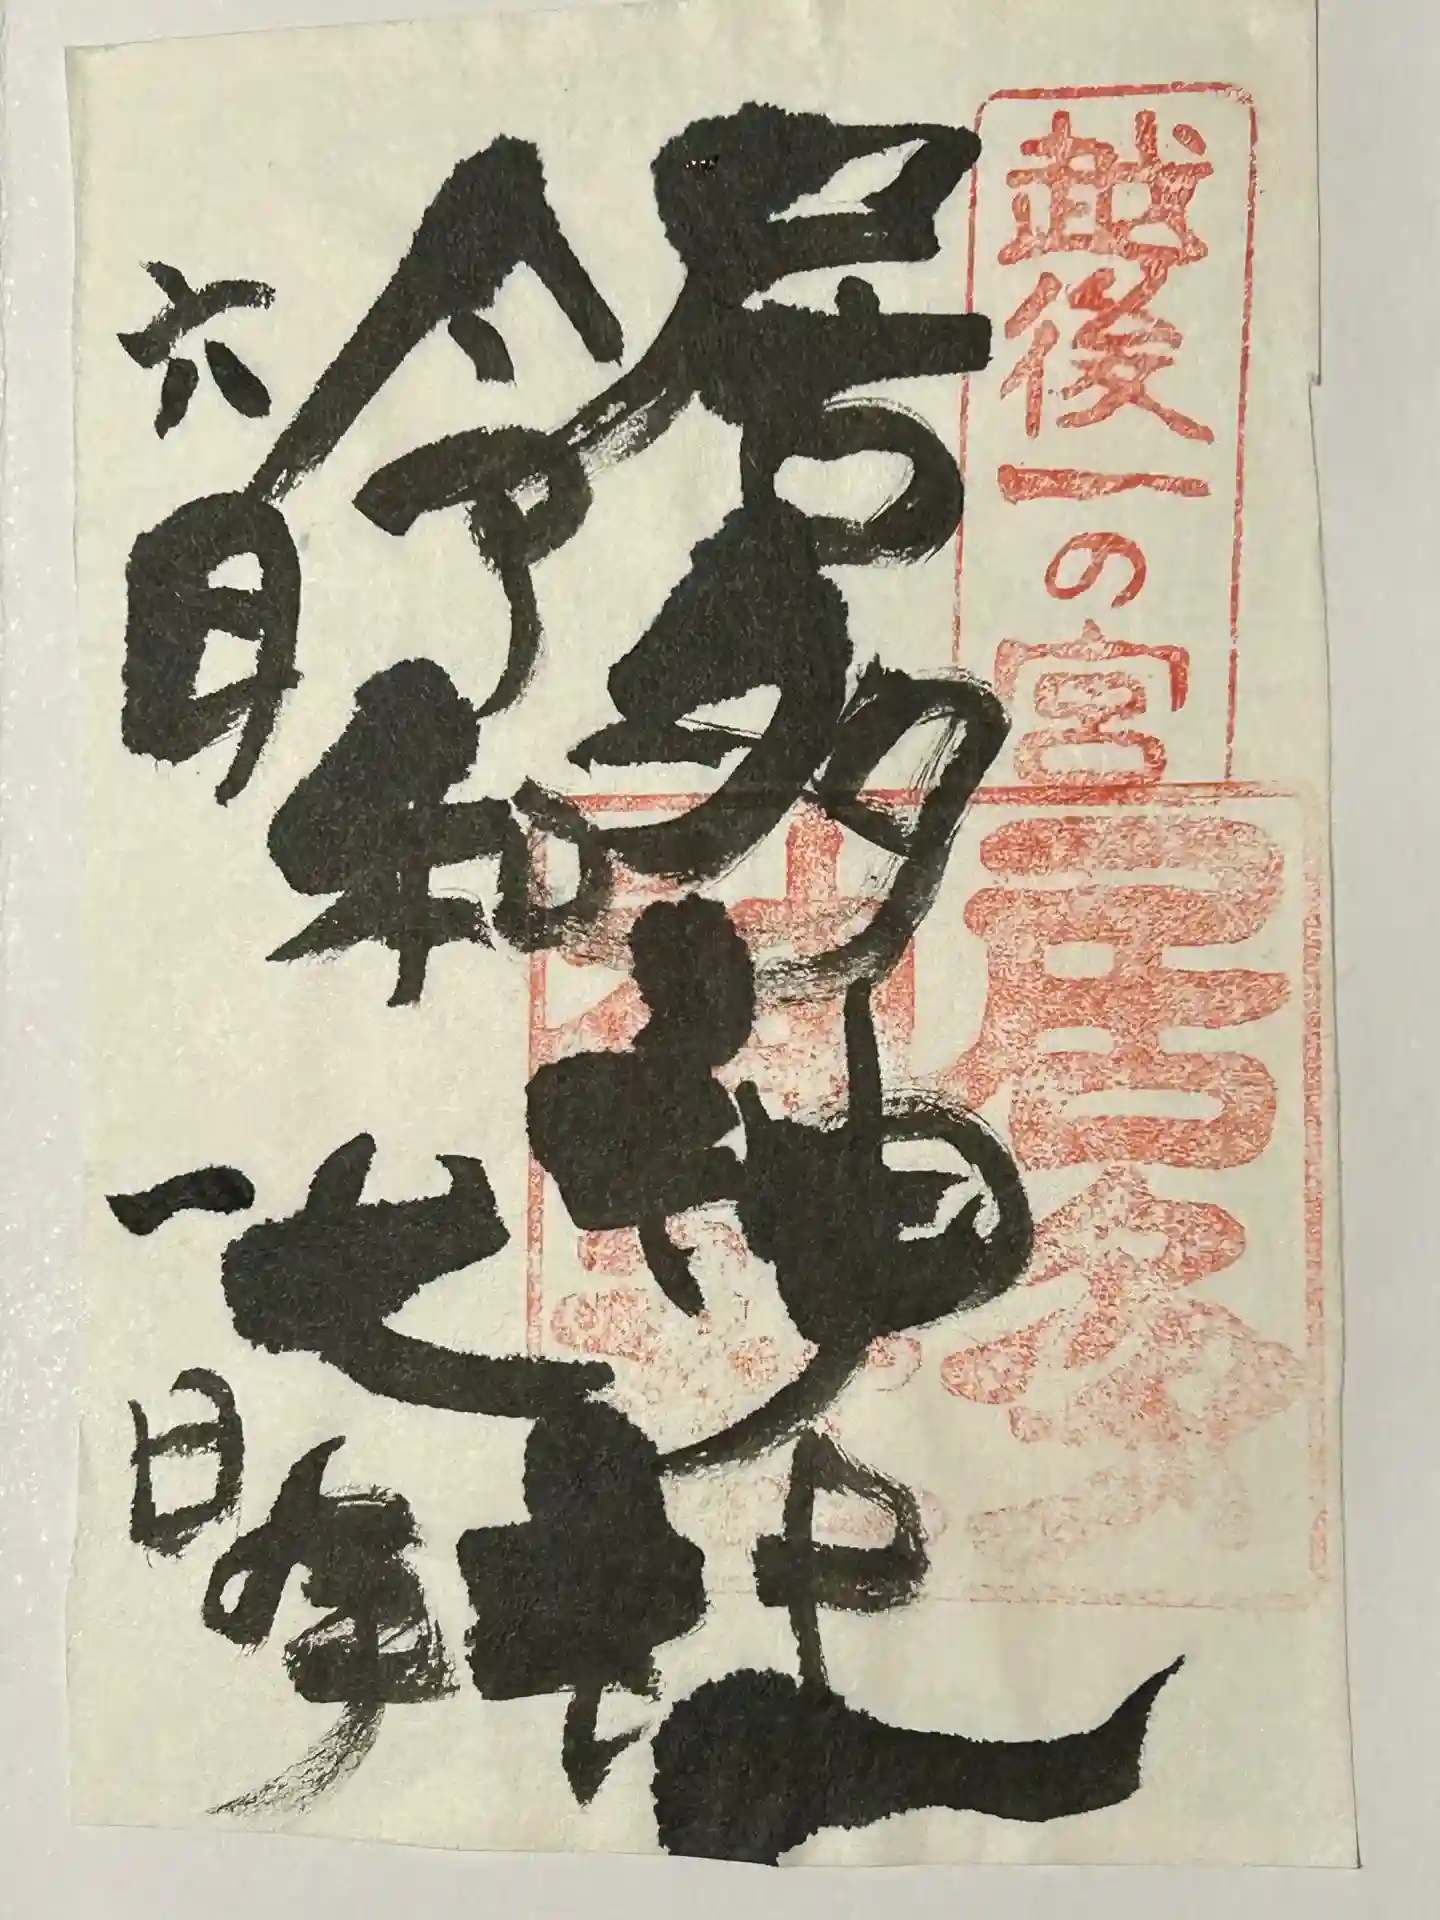 越後一の宮
居多神社
令和七年
六月
一日
居多